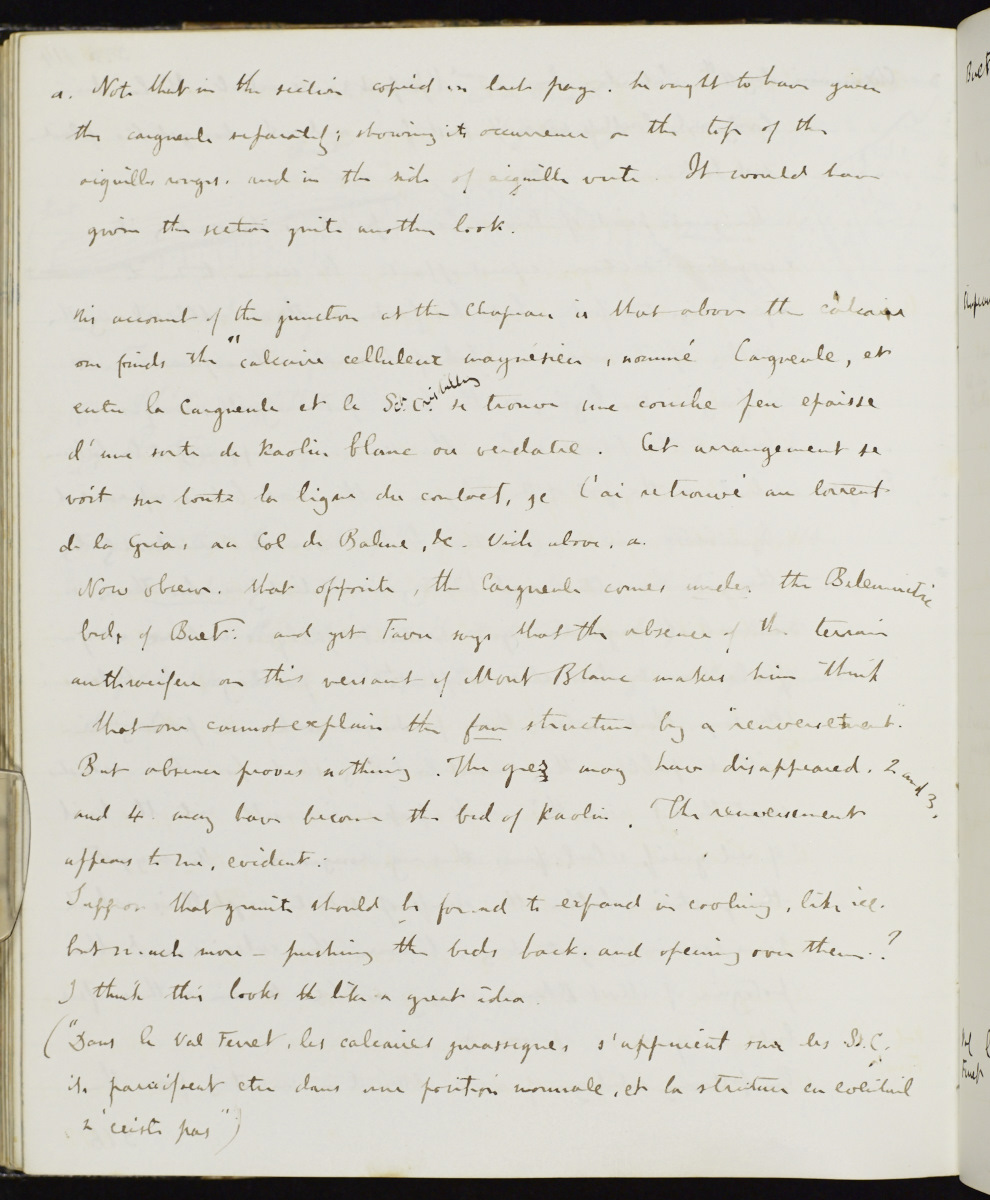 a. Note that in the section copied in last page. he ought to have given
the cargneule separately; showing its occurrence on the top of the
aiguilles rouges. and in the side of aiguille verte. It would have
given the section quite another look.
His account of the junction at the Chapeau is that above the calcaire
one finds the "calcaire celluleux magnésien, nommé Cargneule, et
entre la Cargneule et le Sct. Cristallins se trouve une couche peu epaisse
d'une sorte de kaolin blanc ou verdatre. Cet arrangement se
voit sur toute la ligne du contact, je l'ai retrouvé au torrent
de la Gria, au Col de Balme, &c. Vide above, a.
Now observe. that opposite, the Cargneule comes under the Belemnitic
beds of Buet: and yet Favre says that the absence of the terrain
anthracifere on this versant of Mont Blanc makes him think
that one cannot explain the fan structure by a "renversement".
But absence proves nothing. The grez may have disappeared. 2 and 3,
and 4 may have become the bed of kaolin. The renversement
appears to me, evident.
Suppose that granite should be found to expand in cooling, like ice.
but much more – pushing the beds back. and opening over them.?
I think this looks like a great idea.
("Dans le Val Ferret, les calcaires jurassiques s'appuient sur les Sc. C.
ils paraissent etre dans une position normale, et la structure en eventail
n'existe pas")
Buet
Chapeau
Val
Ferret